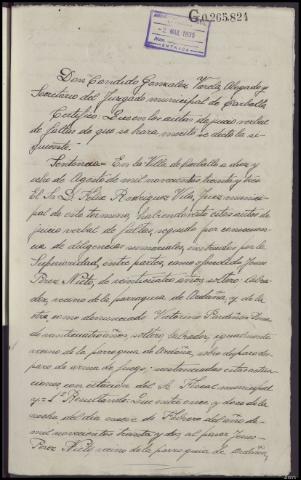 G.0.265.824
2 MAR. 1939
ENTRADA
Don Candido Gonzalez Varela, Abogado y
Secretario del Juzgado municipal de Carballo.
Certifico: Que en los autos de juicio verbal
de faltas de que se hara merito se dictó la si-
guiente.
Sentencia = En la Villa de Carballo a diez y
ocho de Agosto de mil novecientos treinta y tres
El Sr. D. Felix Rodriguez Vila, Juez munici-
pal de este termino, habiendo visto estos autos de
juicio verbal de faltas, seguido por consecuen-
cia de diligencias sumariales, instruidas por la
Superioridad, entre partes, como ofendido Jesus
Perez Nieto, de veinticuatro años, soltero, labra-
dor, vecino de la parroquia de Ardaña, y de la
otra, como denunciado Victorino
de veinticuatro años, soltero, labrador, igualmente
vecino de la parroquia de Ardaña, sobre disparo de
arma de fuego; sustanciadas estas actua-
ciones con citacion del Sr. Fiscal municipal
y = 1º Resultando: Que entre once y doce de la
noche del dia nueve de Febrero del año de
mil novecientos treinta y dos, al pasar Jesus
Perez Nieto, vecino de la parroquia de Ardaña,